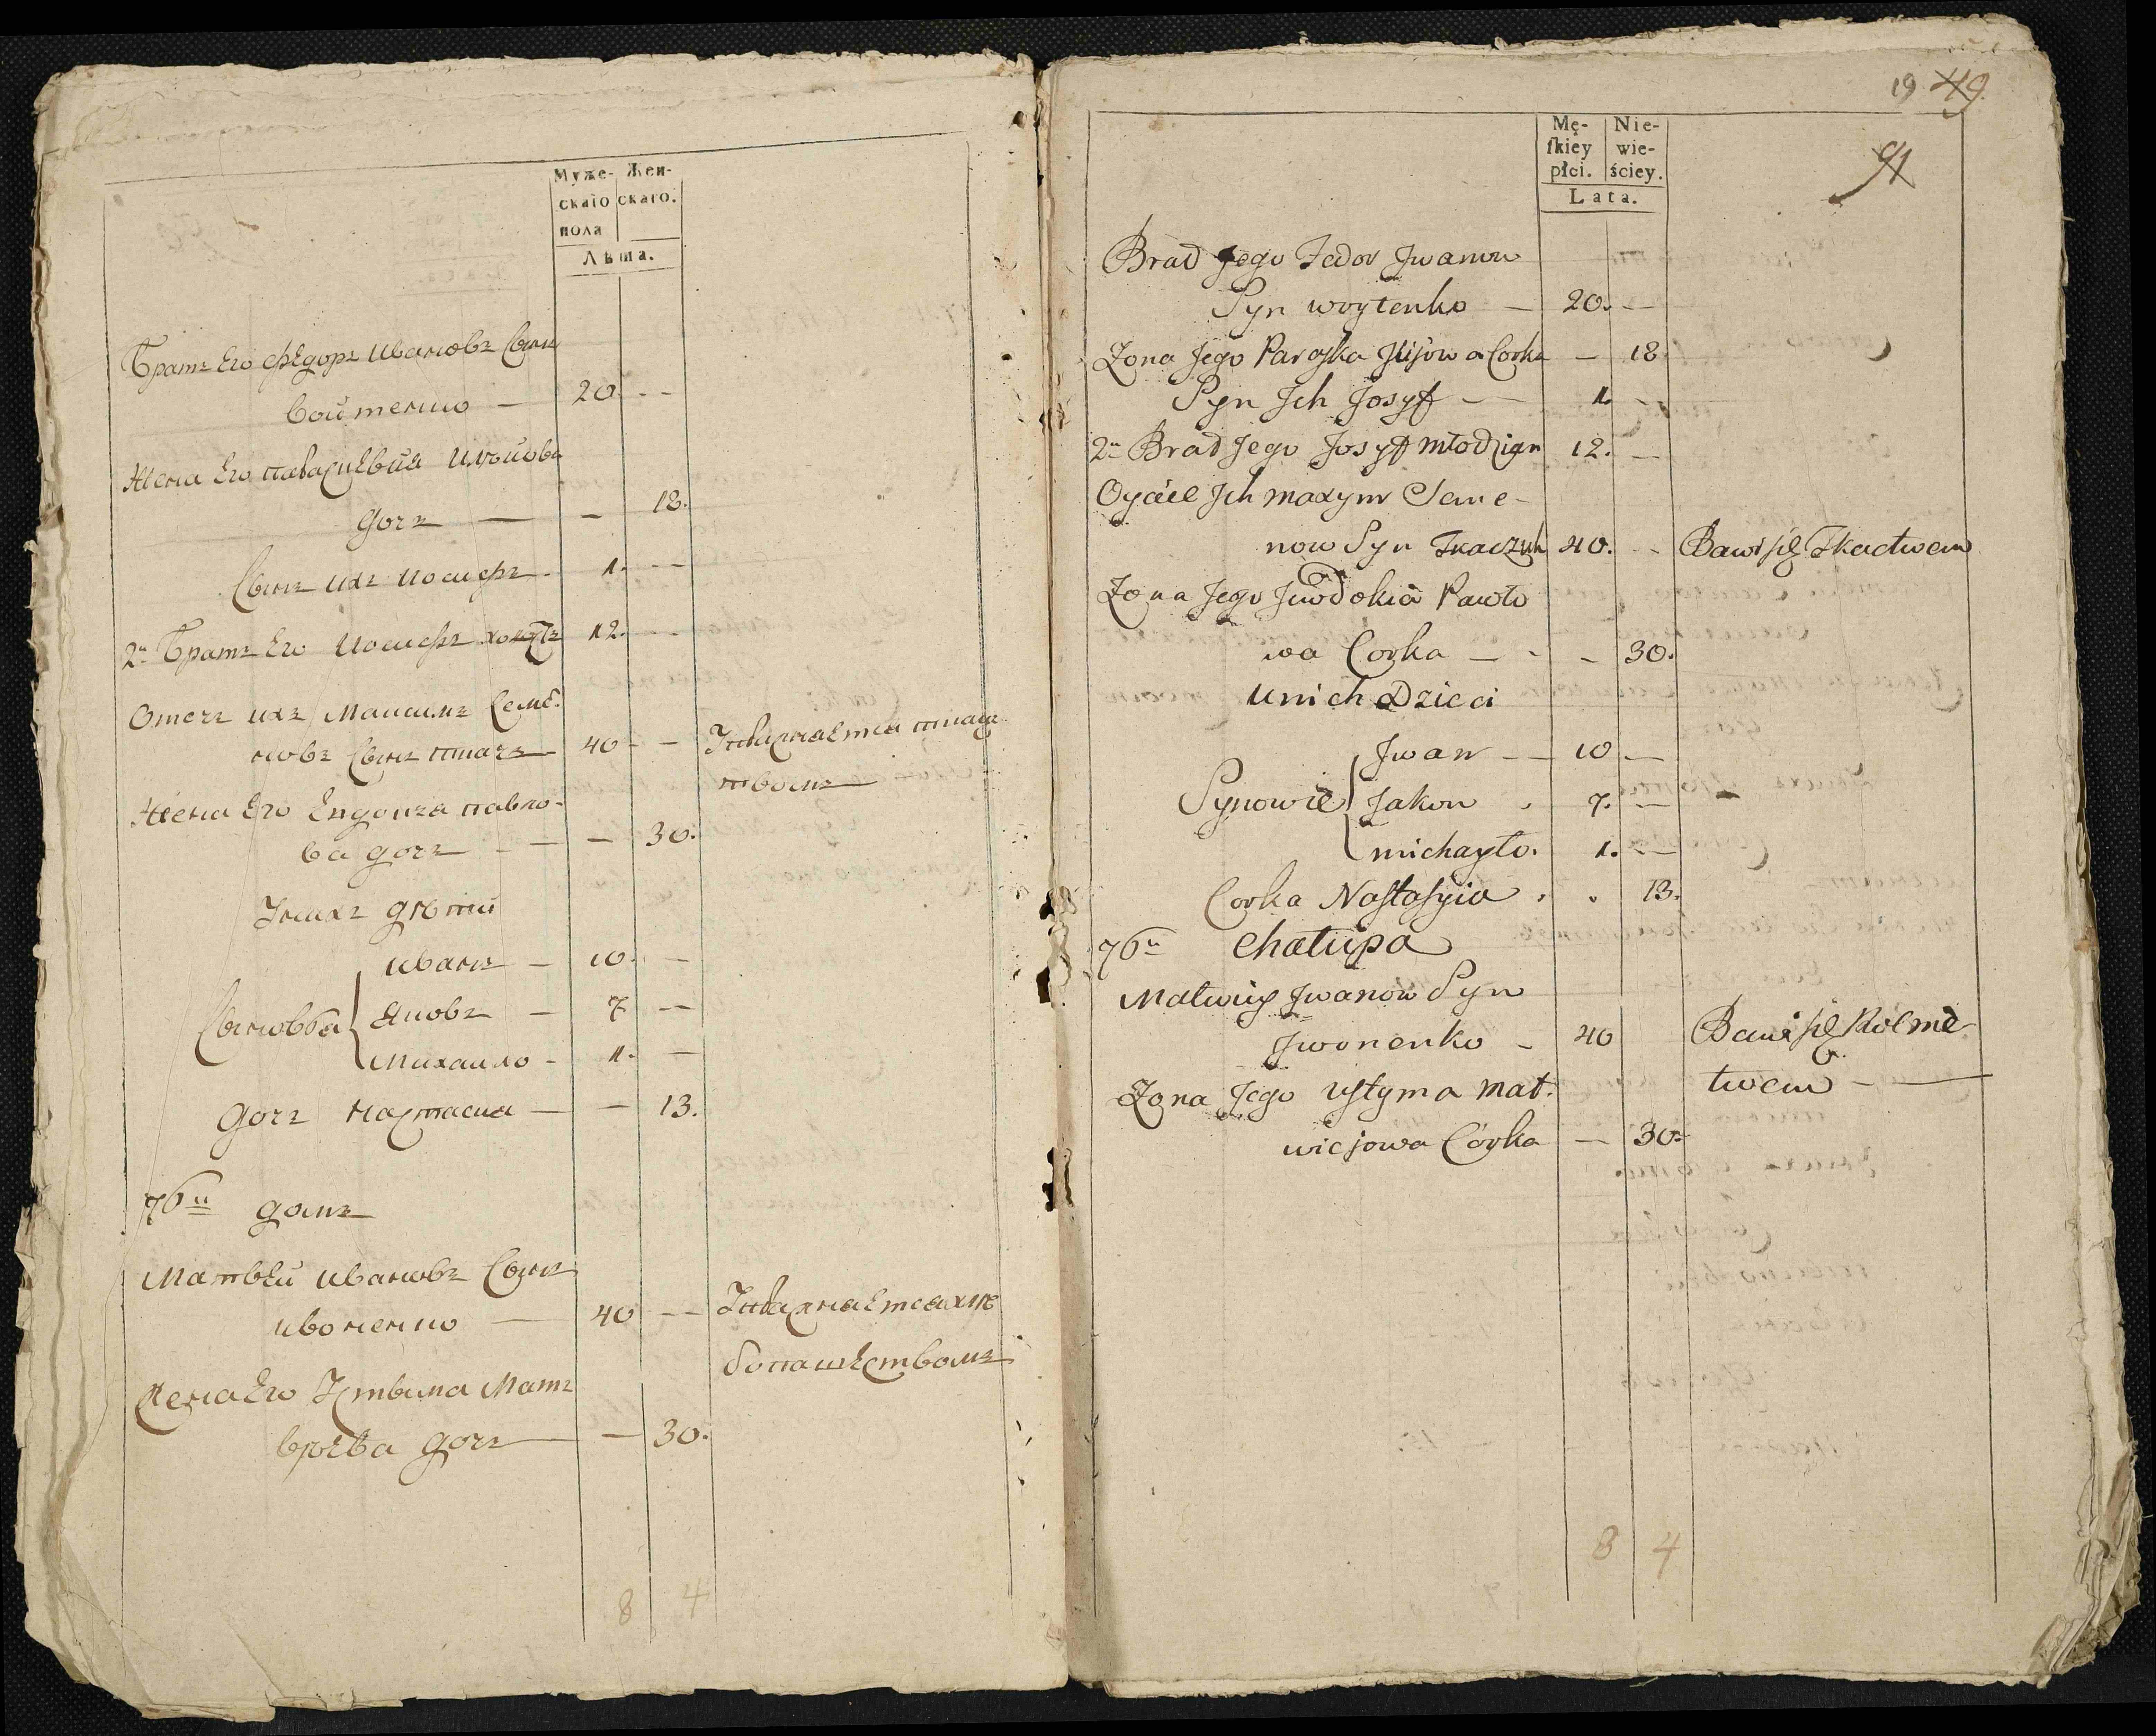 Муже- Жен-
скаго скаго.
пола
Лѣта.
Братъ Его Федоръ Ивановъ Сынъ
Войтенко — 20. - -
Жена Его Ильиова
дочъ — - 18.
Сынъ ихъ Иосифъ - 1. - -
2й Братъ Его Иосифъ холостъ 12. - -
Отецъ ихъ Максимъ Семе-
новъ Сынъ ткачъ - 40 - - Упражняется ткац
твомъ
Жена Его Евдокиа павло-
ва дочъ - — - 30.
Унихъ дѣтей
Иванъ - 10. -
Сыновья Яковъ - 7 —
Михаило - 1. —
дочъ Настасиа — — 13.
76й домъ
Матвѣй Ивановъ Сынъ
Ивоненко — 40 — Упражняется хлѣ
бопашествомъ
Жена Его Устима Матъ
вѣева дочъ — — 30.
8 4
19 49
91
Mę- Nie-
ſkiey wie-
płci. ściey.
Lata.
Brad Jego Fedor Jwanow
Syn woytenko — 20. —
Zona Jego Paraſka Jlijow a Corka — 18
Syn Jch Josyf — 1. -
2n Brad Jego Josyf młodzian 12. —
Oyciec Jch maxym Seme-
now Syn Tkaczuk 40. - Bawi ſię Tkactwem
Zona Jego Jewdokia Pawło
wa Corka — - - 30.
U nich Dzieci
Jwan — 10 —
Synowie Jakow - 7. —
michayło. 1. —
Corka Naſtaſyia - - 13.
76n Chałupa
Matwiy Jwanow Syn
Jwonenko - 40 Bawi ſię Rolnic
Zona Jego Uſtyma Mat- twem —
wiejowa Córka — 30.
8 4